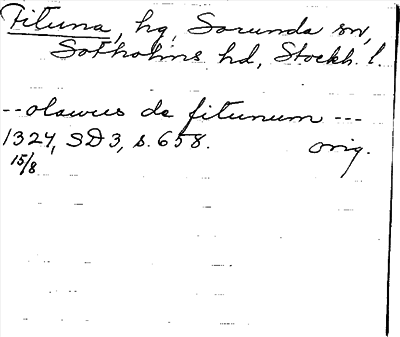 Fituna, hg, Sorunda sn,
Sotholms hd, Stockh. l.
-- olawus de fitunum ---
1327, SD 3, s. 658. orig.
15/8